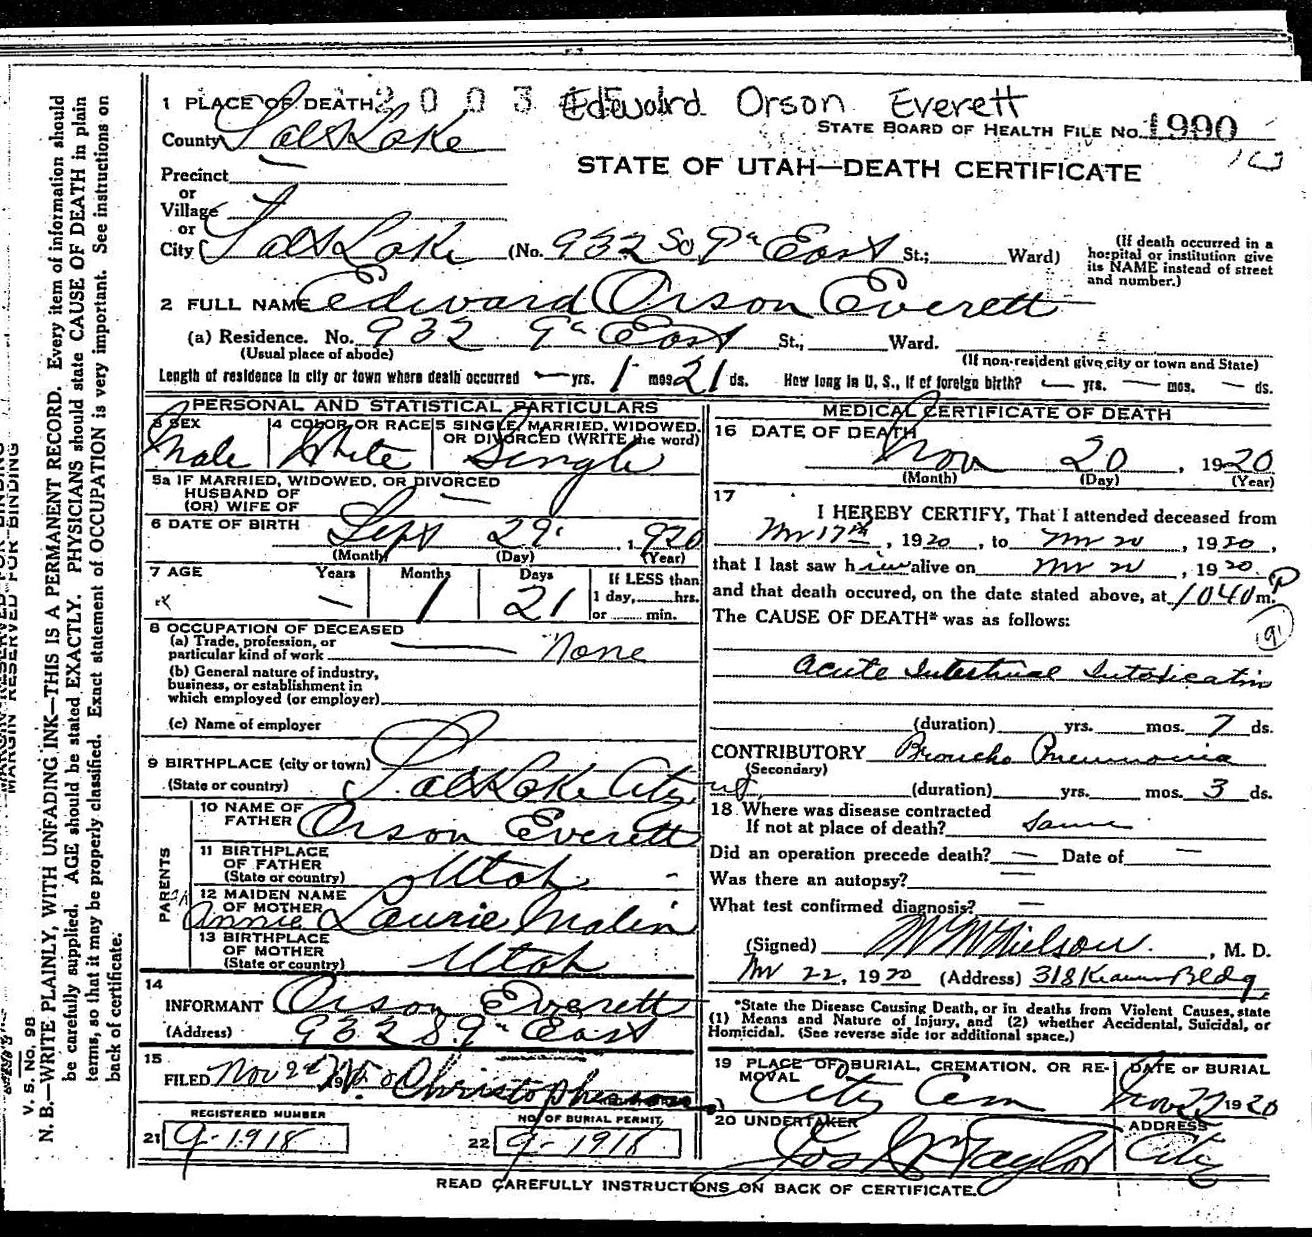 2003 Edward Orson Everett
1 PLACE OF DEATH
STATE BOARD OF HEALTH FILE No. 1990
County Salt Lake
STATE OF UTAH—DEATH CERTIFICATE
Precinct —
or
Village —
or
City Salt Lake (No. 932 So 9th East St.; Ward)
(If death occurred in a
hospital or institution give
its NAME instead of street
and number.)
2 FULL NAME Edward Orson Everett
(a) Residence. No. 932 9th East St., Ward.
(Usual place of abode)
(If non-resident give city or town and State)
Length of residence in city or town where death occurred — yrs. 1 mos. 21 ds. How long in U. S., if of foreign birth? — yrs. — mos. — ds.
PERSONAL AND STATISTICAL PARTICULARS
3 SEX
Male
4 COLOR OR RACE
White
5 SINGLE, MARRIED, WIDOWED,
OR DIVORCED (WRITE the word)
Single
5a IF MARRIED, WIDOWED, OR DIVORCED
HUSBAND OF
(OR) WIFE OF —
6 DATE OF BIRTH Sept 29 1920
(Month) (Day) (Year)
7 AGE Years Months Days
— 1 21
If LESS than
1 day, hrs.
or min.
8 OCCUPATION OF DECEASED
(a) Trade, profession, or
particular kind of work None
(b) General nature of industry,
business, or establishment in
which employed (or employer)
(c) Name of employer
9 BIRTHPLACE (city or town)
(State or country) Salt Lake City, Ut.
PARENTS
10 NAME OF
FATHER Orson Everett
11 BIRTHPLACE
OF FATHER
(State or country) Utah
12 MAIDEN NAME
OF MOTHER
Annie Laurie Malin
13 BIRTHPLACE
OF MOTHER
(State or country) Utah
14
INFORMANT Orson Everett
(Address) 932 S 9th East
15
FILED Nov 22 Christopherson
REGISTERED NUMBER
21 9-1918
NO. OF BURIAL PERMIT
22 9-1918
MEDICAL CERTIFICATE OF DEATH
16 DATE OF DEATH
Nov 20, 1920
(Month) (Day) (Year)
17
I HEREBY CERTIFY, That I attended deceased from
Nov 17th, 1920, to Nov 20, 1920,
that I last saw him alive on Nov 20, 1920.
and that death occured, on the date stated above, at 1040 P m.
The CAUSE OF DEATH* was as follows:
Acute Intestinal Intoxication
(duration) yrs. mos. 7 ds.
CONTRIBUTORY Broncho Pneumonia
(Secondary)
(duration) yrs. mos. 3 ds.
18 Where was disease contracted
If not at place of death? Same
Did an operation precede death? — Date of —
Was there an autopsy? —
What test confirmed diagnosis? —
(Signed) Nielson, M. D.
Nov 22, 1920 (Address) 318 Kearns Bldg
*State the Disease Causing Death, or in deaths from Violent Causes, state
(1) Means and Nature of Injury, and (2) whether Accidental, Suicidal, or
Homicidal. (See reverse side for additional space.)
19 PLACE OF BURIAL, CREMATION, OR RE-
MOVAL City Cem
DATE OF BURIAL
Nov 22 1920
20 UNDERTAKER
Jos Wm Taylor
ADDRESS
City
READ CAREFULLY INSTRUCTIONS ON BACK OF CERTIFICATE.
MARGIN RESERVED FOR BINDING
V. S. No. 98
N. B.—WRITE PLAINLY, WITH UNFADING INK—THIS IS A PERMANENT RECORD. Every item of information should
be carefully supplied. AGE should be stated EXACTLY. PHYSICIANS should state CAUSE OF DEATH in plain
terms, so that it may be properly classified. Exact statement of OCCUPATION is very important. See instructions on
back of certificate.